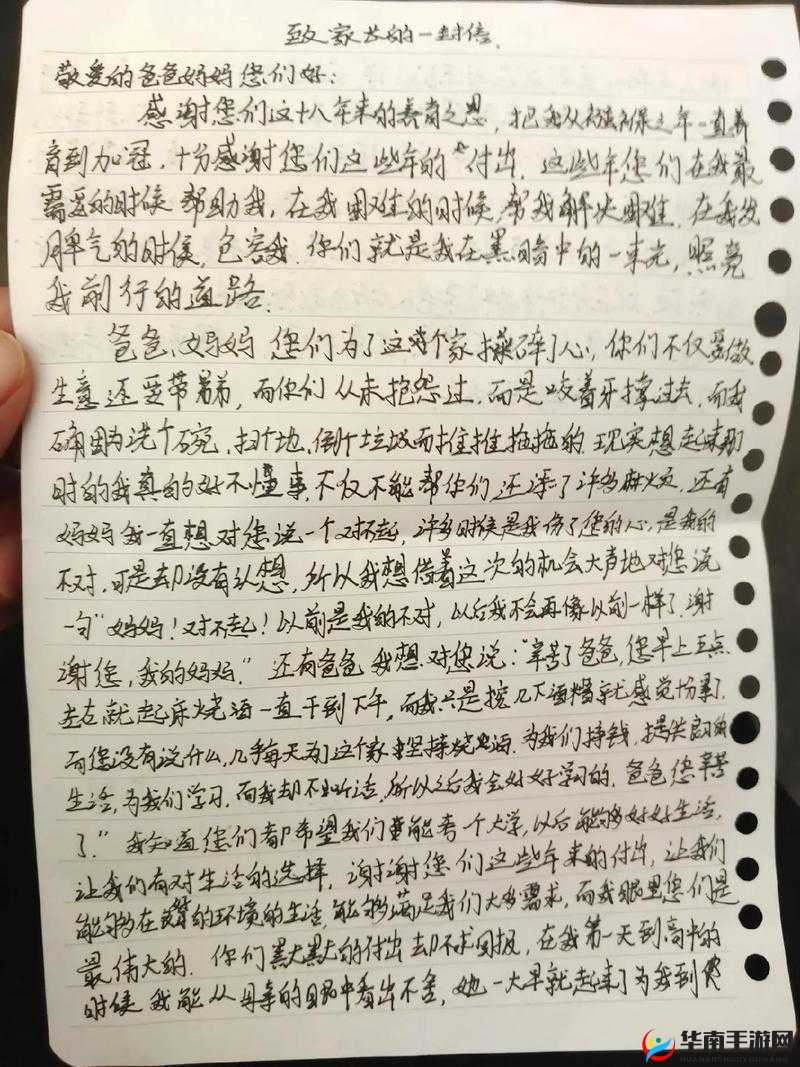 致家长的一封信.
敬爱的爸爸妈妈您们好:
感谢您们这十八年来的养育之恩, 把我从襁褓之年一直养
育到加冠. 十分感谢您们这些年的付出. 这些年您们在我最
需要的时候帮助我, 在我困难的时候帮我解决困难. 在我发
脾气的时候, 包容我. 你们就是我在黑暗中的一束光, 照亮
我前行的道路.
爸爸、妈妈 您们为了这个家操碎了心, 你们不仅要做
生意还要带弟, 而你们从未抱怨过. 而是咬着牙撑过去. 而我
确因为洗个碗, 扫个地, 倒个垃圾而推推拖拖的. 现实想起来那
时的我真的好不懂事, 不仅不能帮你们还添了许多麻烦, 还有
妈妈我一直想对您说一个对不起, 许多时候是我伤了您的心, 是我的
不对, 可是却没有认想, 所以我想借着这次的机会大声地对您说
一句“妈妈! 对不起! 以前是我的不对, 以后我不会再像以前一样了. 谢
谢您, 我的妈妈.” 还有爸爸 我想对您说: “辛苦了爸爸, 您早上五点
左右就起床烧酒一直干到下午, 而我只是挖几下酒糟就感觉累了.
而您没有说什么, 几乎每天为了这个家坚持烧酒. 为我们挣钱,
生活, 为我们学习. 而我却不听话, 所以之后我会好好学习的. 爸爸您辛苦
了.” 我知道您们都希望我们能考一个大学, 以后能够好好生活,
让我们有对生活的选择. 谢谢您们这些年来的付出, 让我们
能够在的环境的生活, 能够满足我们大多需求, 而我眼里您们是
最伟大的. 你们默默的付出却不求回报, 在我第一天到高中的
时候 我能从母亲的眼中看出不舍, 她一大早就起来了为我到
华南手游网
HUANANSHOUYOUWANG